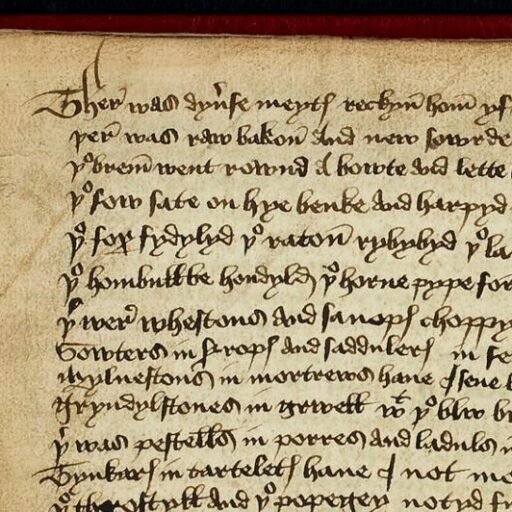 Ther was dyvse meyts reckyn hom yf
þer was raw bakon and new sowrde
þe brem went rownd a bowte and lette
þe sow sate on hye benke and harpyd
þe fox fydylyd þe raton rybybyd þe la
þe hombullbe hondyld þe horne pype for
þr wer whestons and sanops choppy
Sowters in syrops and saddulers in se
Mylnestons in mortrews haue I sene
Gryndylstones in grwell wt þe blw br
þr was pestells in porres and laduls
Tynkars in tartelets haue I not mo
þe throstyll and þe popegey notyd f